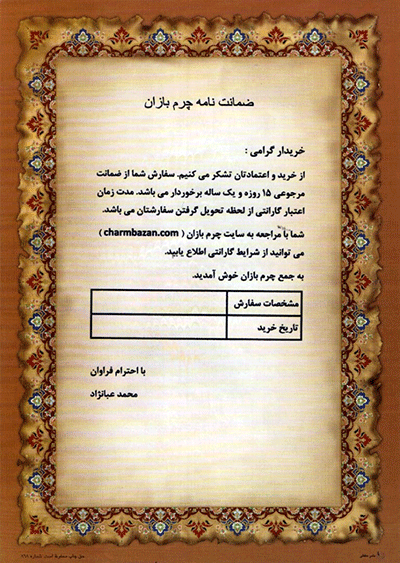 ضمانت نامه چرم بازان
خریدار گرامی :
از خرید و اعتمادتان تشکر می کنیم. سفارش شما از ضمانت
مرجوعی ۱۵ روزه و یک ساله برخوردار می باشد. مدت زمان
اعتبار گارانتی از لحظه تحویل گرفتن سفارشتان می باشد.
شما با مراجعه به سایت چرم بازان ( charmbazan.com )
می توانید از شرایط گارانتی اطلاع یابید.
به جمع چرم بازان خوش آمدید.
مشخصات سفارش
تاریخ خرید
با احترام فراوان
محمد عبانژاد